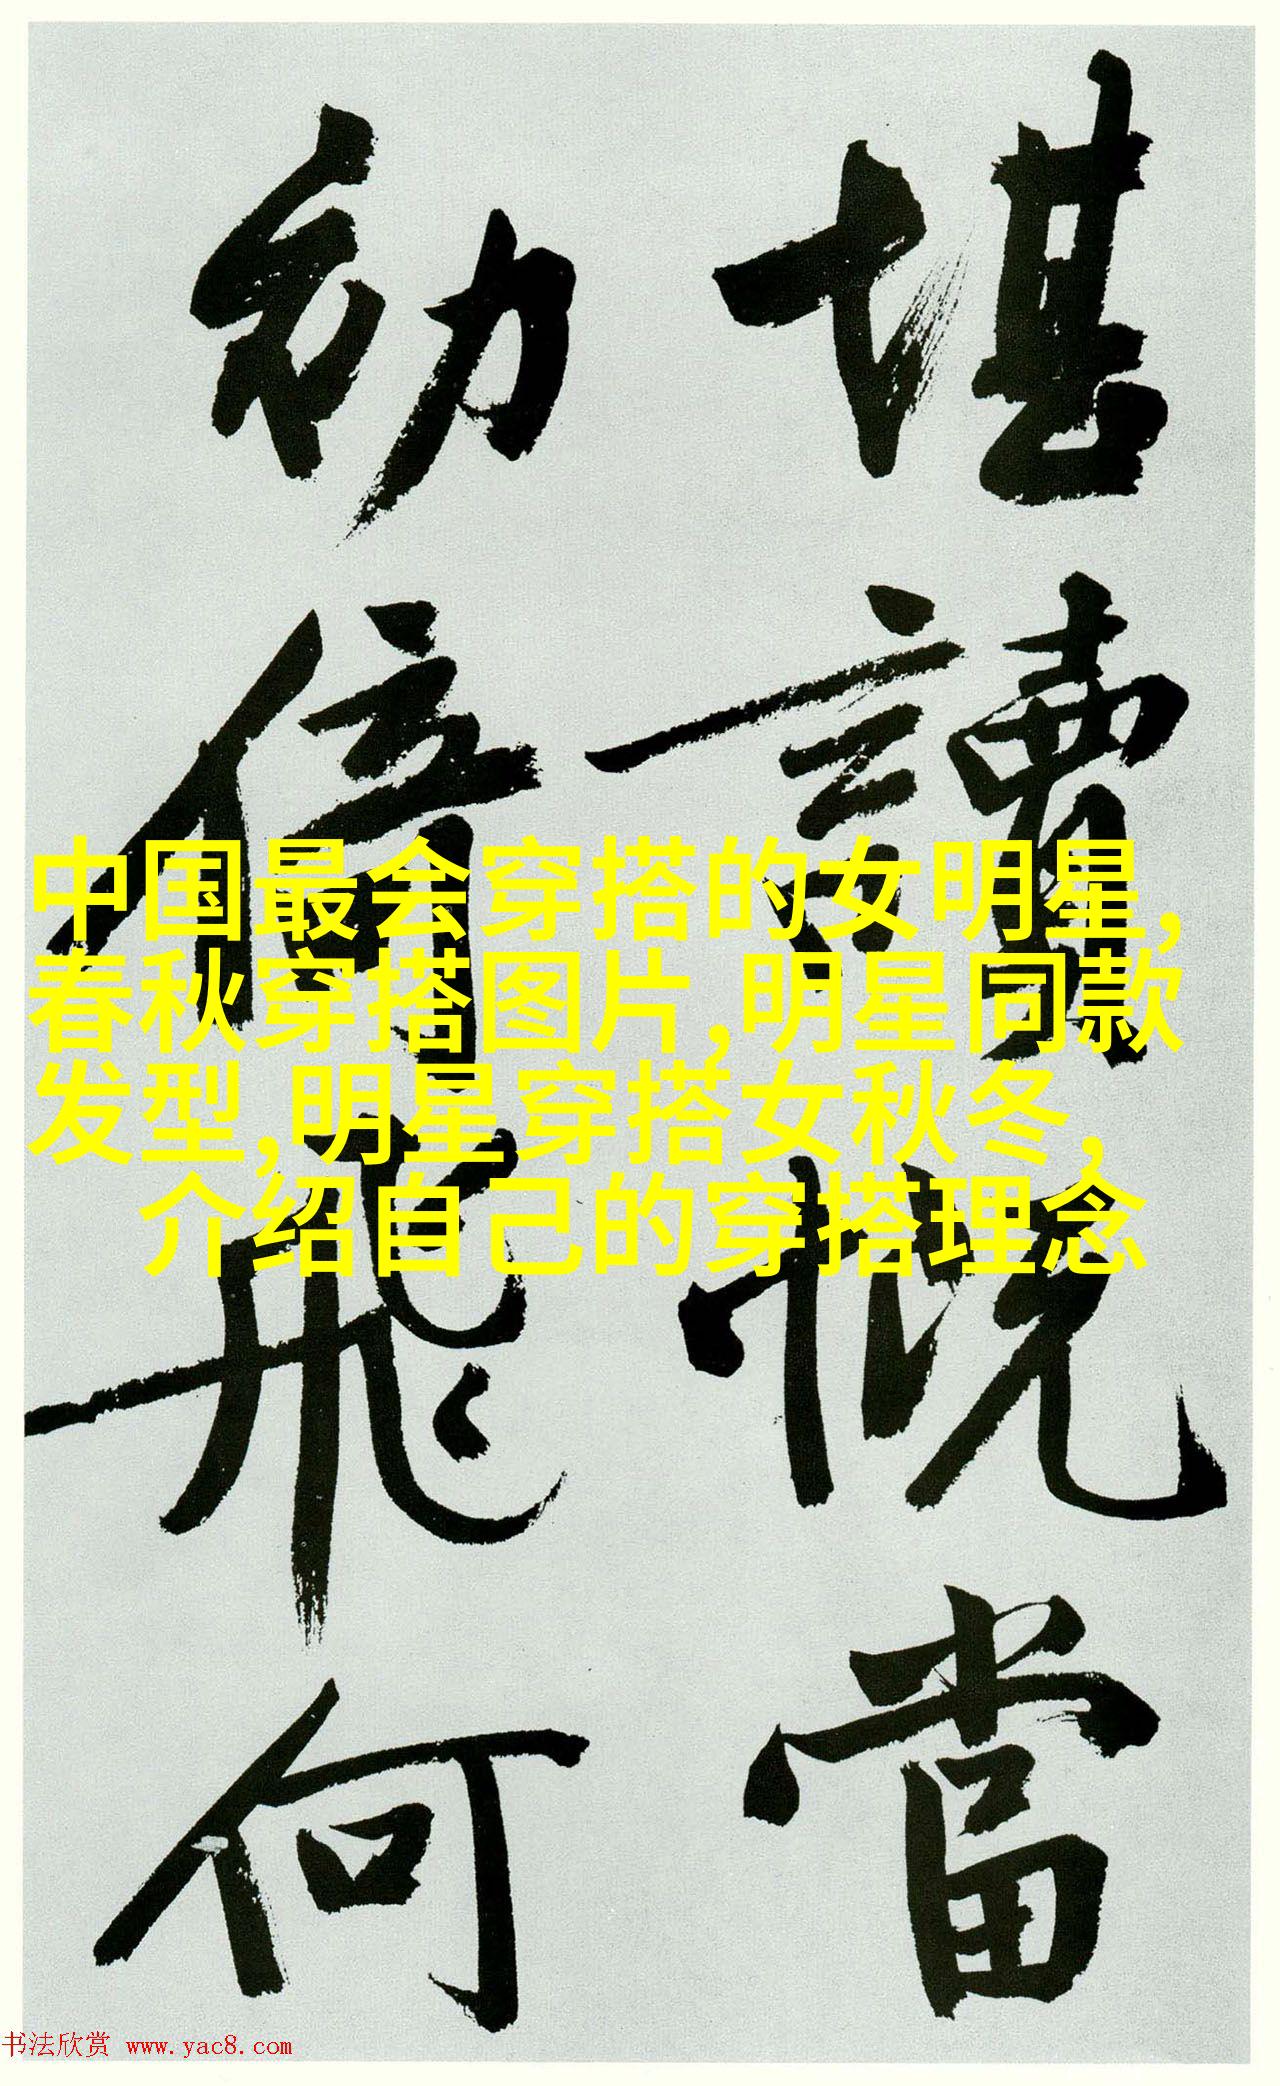 堪讀慨當
初倚飛何
中国最会穿搭的女明星,
春秋穿搭图片,明星同款
发型,明星穿搭女秋冬,
介绍自己的穿搭理念
书法欣赏 www.yac8.com